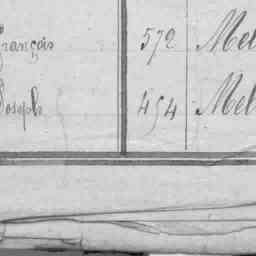 François 572 Mel
Joseph 454 Mel